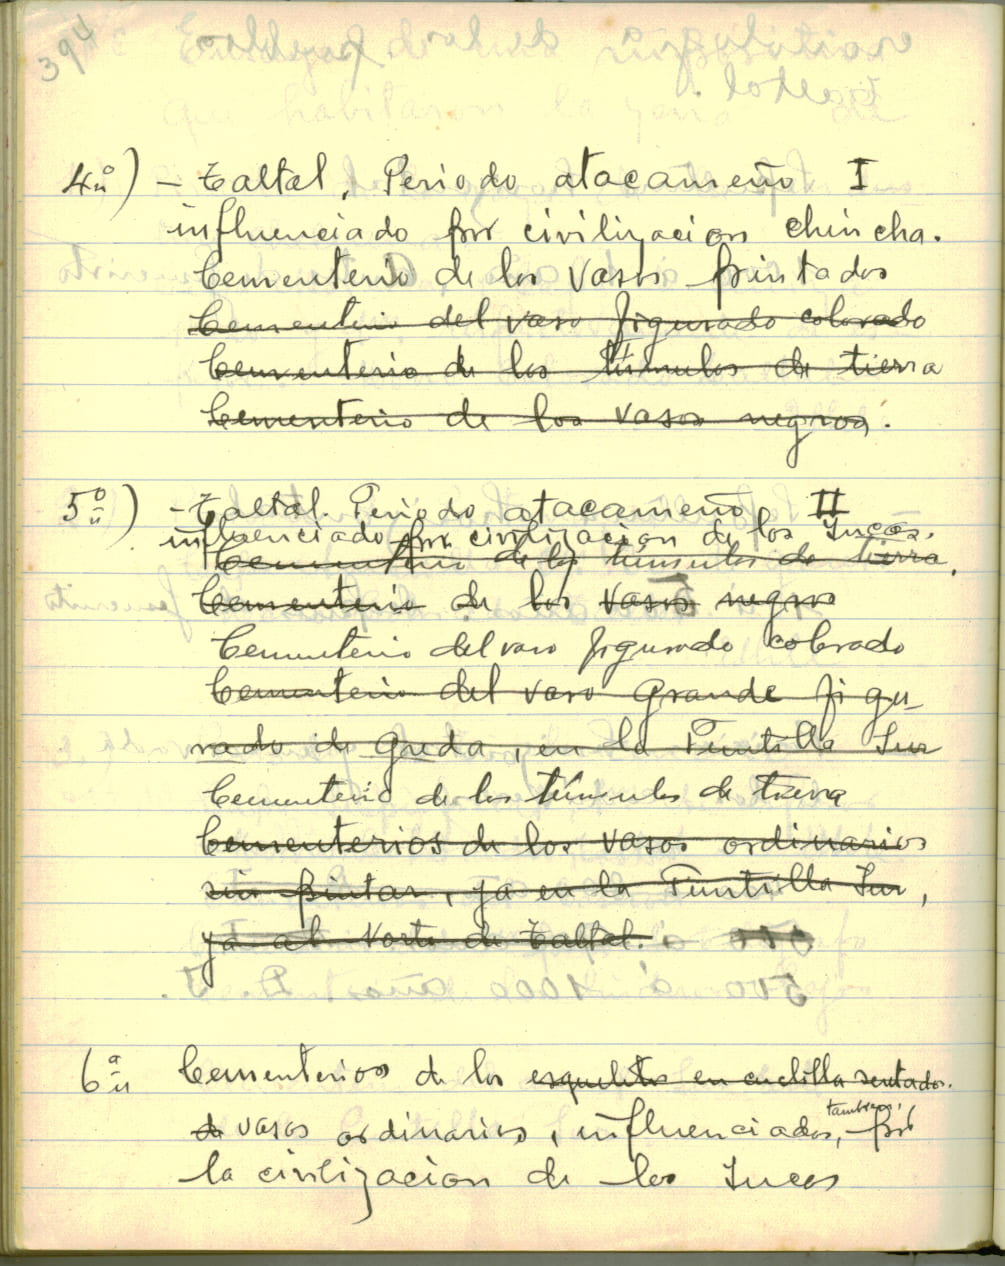 394
4º) - Taltal, Periodo atacameño I
influenciado por civilizacion chincha.
Cementerio de los vasos pintados
Cementerio del vaso figurado colorado
Cementerio de los túmulos de tierra
Cementerio de los vasos negros.
5º) - Taltal. Periodo atacameño II
influenciado por civilizacion de los Incas.
Cementerio de los túmulos de tierra.
Cementerio de los vasos negros
Cementerio del vaso figurado colorado
Cementerio del vaso grande figu-
rado de greda, en la Puntilla Sur
Cementerio de los túmulos de tierra
Cementerios de los vasos ordinarios
sin pintar, ya en la Puntilla Sur,
ya al Norte de Taltal.
6ª Cementerios de los esqueletos en cuclilla sentados.
de vasos ordinarios, influenciados, tambien, por
la civilizacion de los Incas